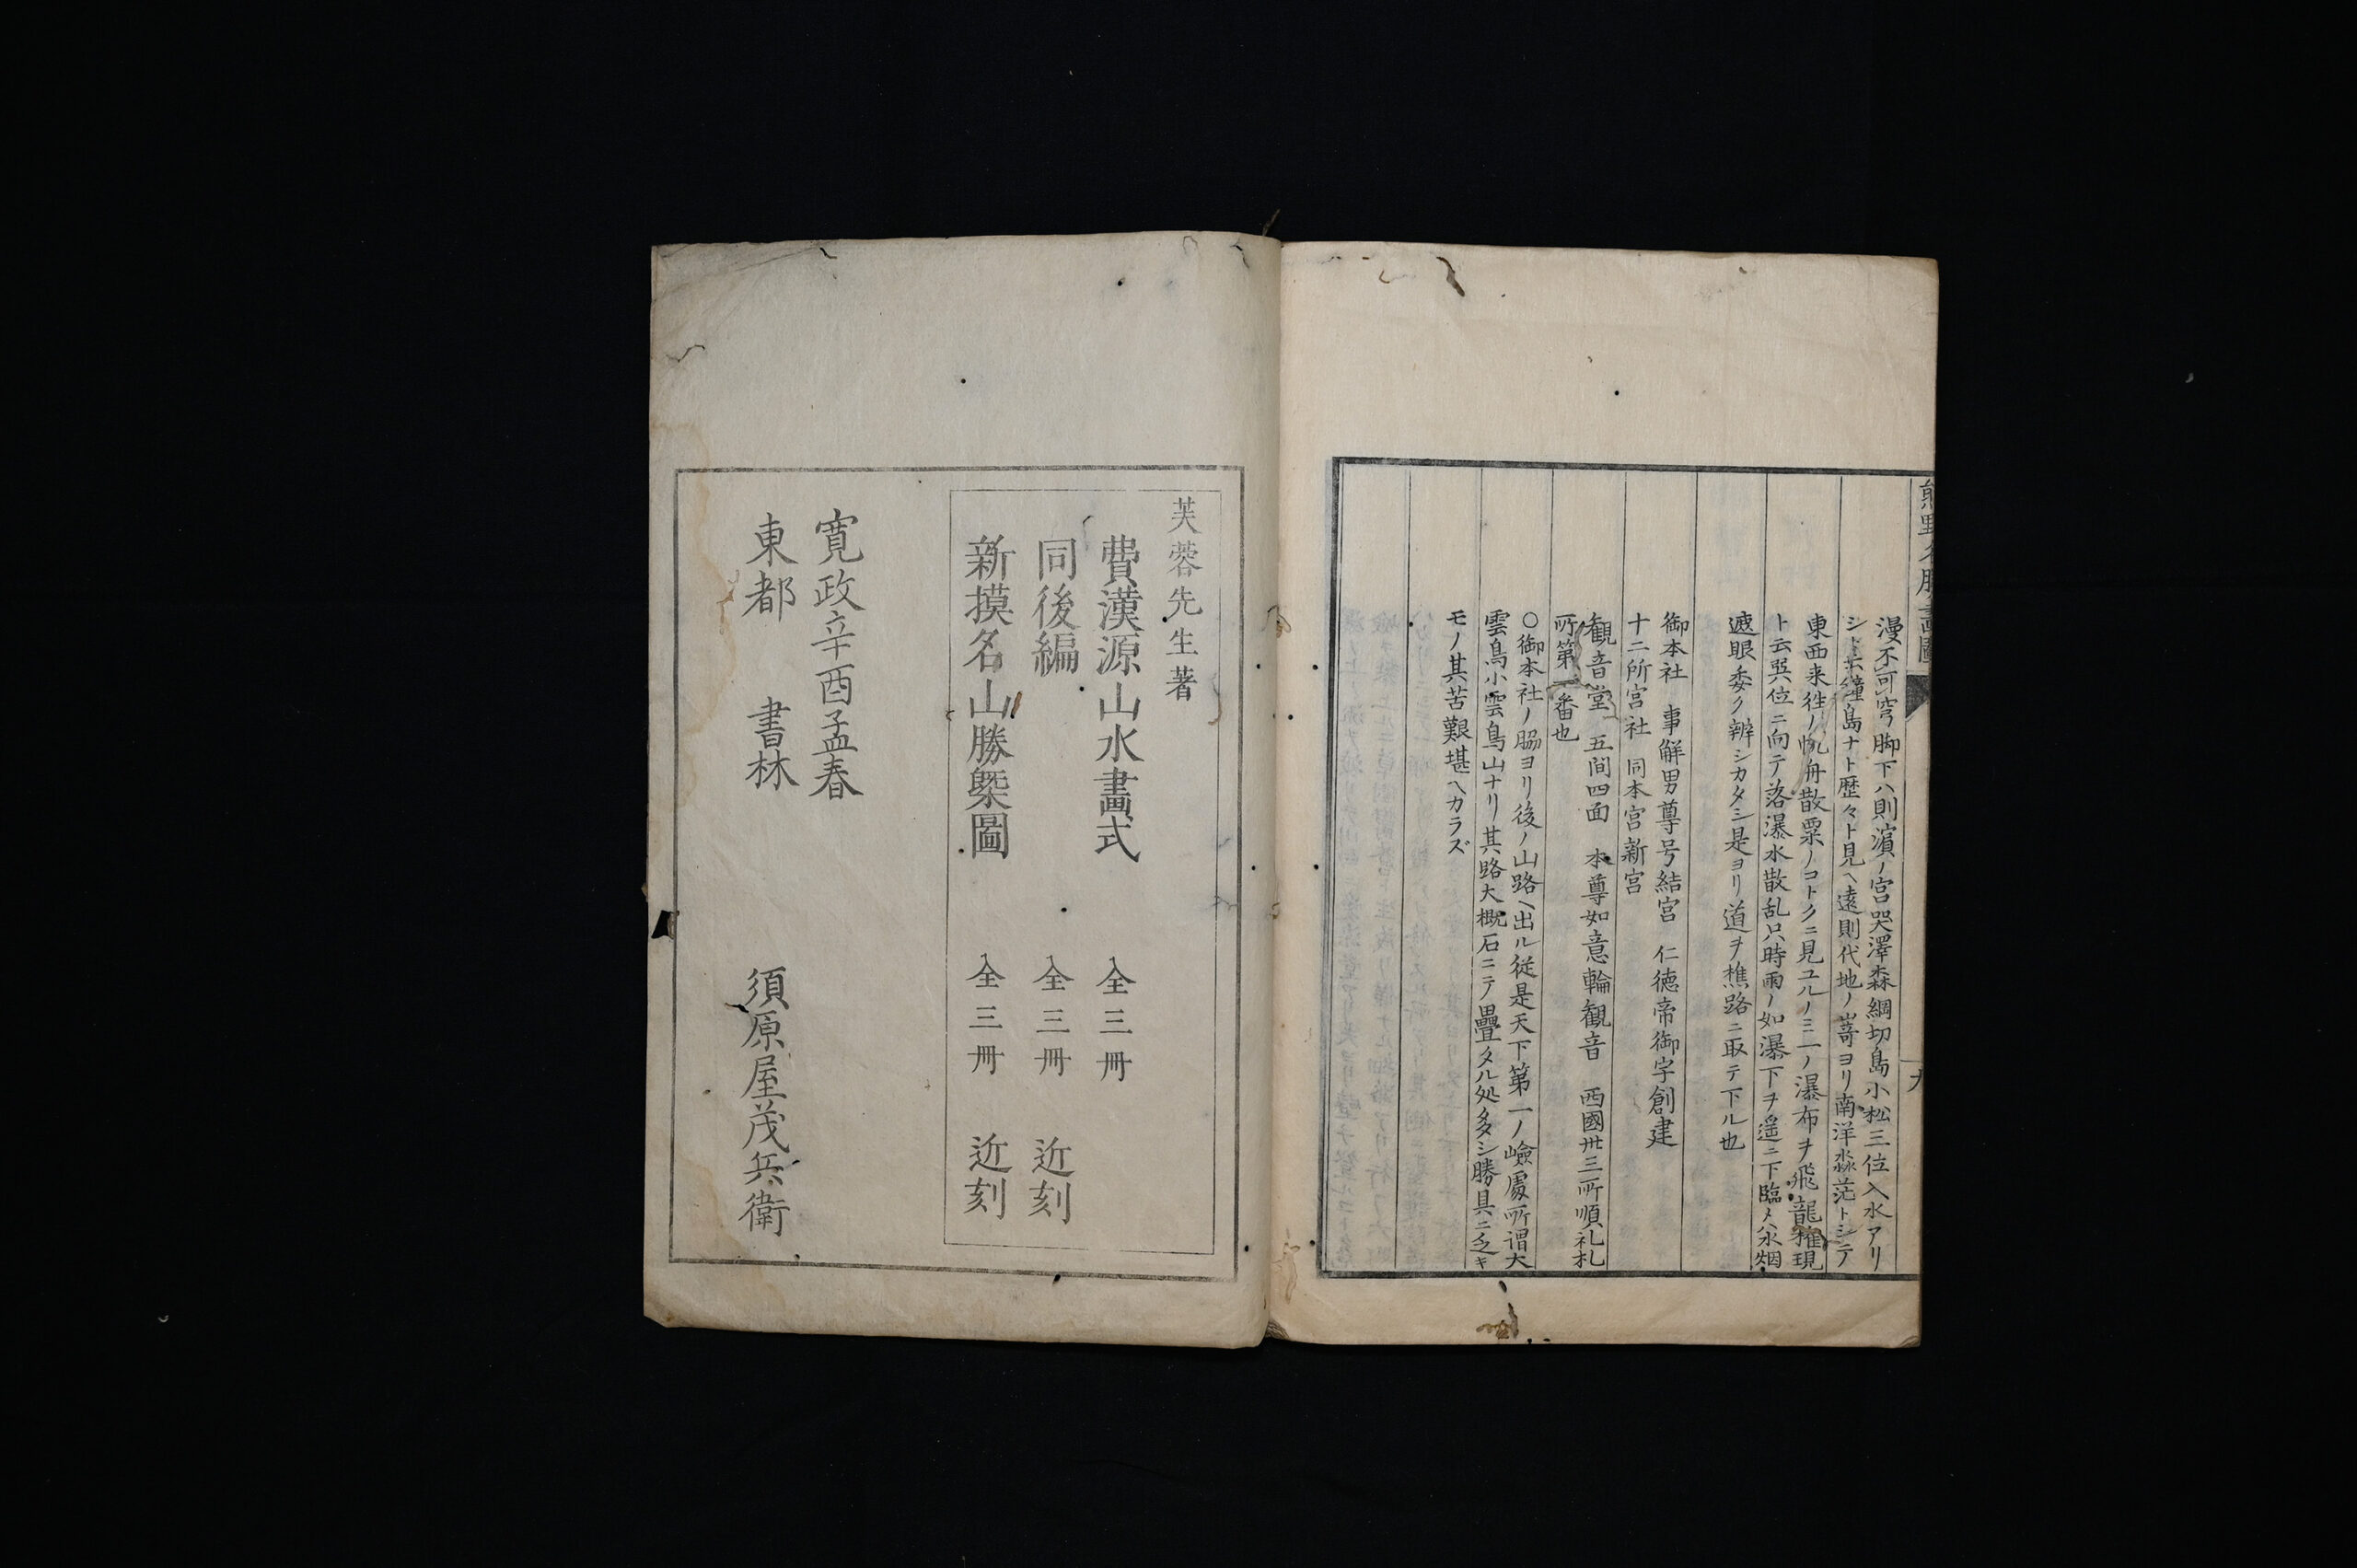 熊野名勝畫圖
九
漫不可穹脚下ハ則濵ノ宮哭澤森綱切島小松三位入水アリ
シト云鐘島ナト歴々ト見ヘ遠則代地ノ嵜ヨリ南洋淼茫トシテ
東西来徃ノ帆舟散粟ノコトクニ見ユル三一ノ瀑布ヲ飛龍権現
ト云巽位ニ向テ落瀑水散乱只時雨ノ如瀑下ヲ遥ニ下臨メハ水烟
遮眼委ク辨シカタシ是ヨリ道ヲ樵路ニ取テ下ル也
御本社 事解男尊号結宮 仁徳帝御宇創建
十二所宮社 同本宮新宮
観音堂 五间四面 本尊如意輪観音 西國卅三所順礼札
所第一番也
○御本社ノ脇ヨリ後ノ山路ヘ出ル従是天下第一ノ嶮處所谓大
雲鳥小雲鳥山ナリ其路大概石ニテ疊タル処多シ勝具ニ乏キ
モノ其苦艱堪ヘカラズ
芙蓉先生著
費漢源山水畫式 全三冊
同後編 全三冊 近刻
新摸名山勝槩圖 全三冊 近刻
寛政辛酉孟春
東都 書林 須原屋茂兵衛